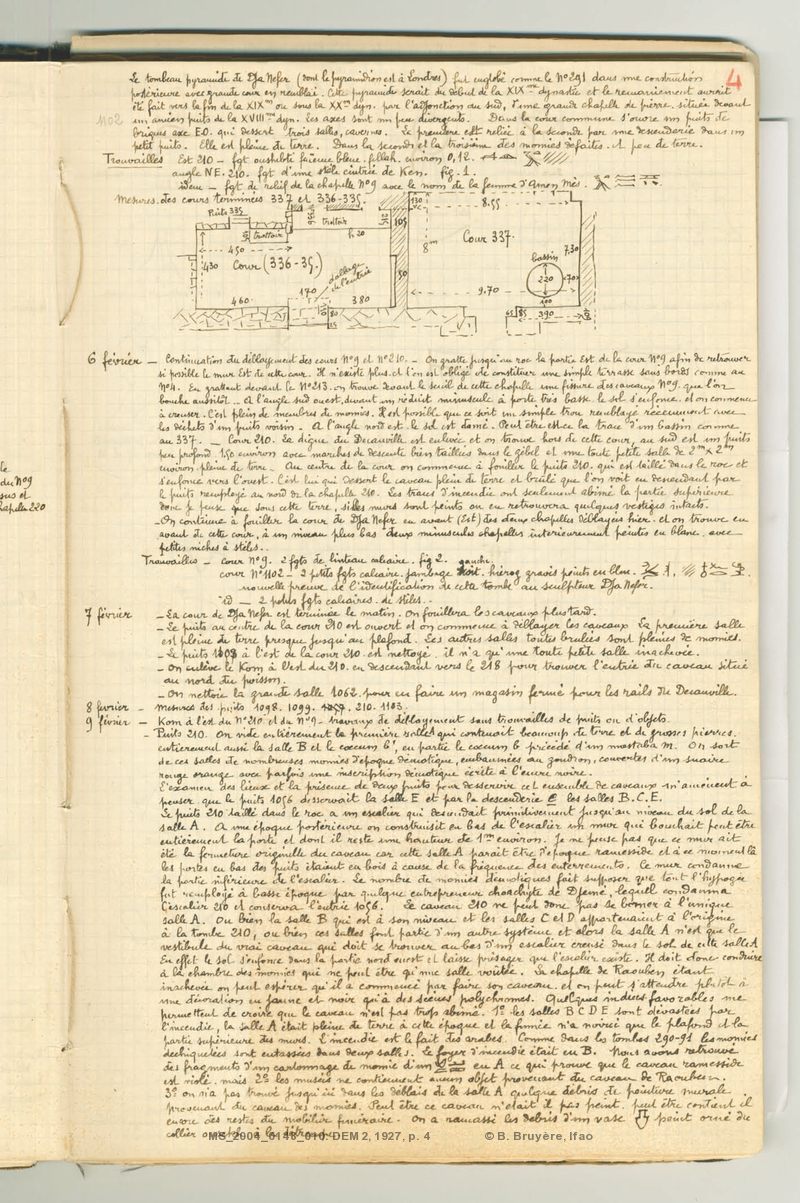 4
Le tombeau pyramide de Dja Nefer (dont le pyramidion est à Londres) fut englobé comme le N° 291 dans une construction
postérieure avec grande cour en remblai. Cette pyramide serait du début de la XIXme dynastie et le remaniement aurait
été fait vers la fin de la XIXme ou sous la XXme dyn. par l'adjonction au sud, d'une grande chapelle de pierre, située devant
un ancien puits de la XVIIIme dyn. les axes sont un peu divergents. Dans la cour commune s'ouvre un puits de
briques axe E.O. qui dessert trois salles, cavernes. La première est reliée à la seconde par une descenderie dans un
petit puits. Elle est pleine de terre. Dans la seconde et la troisième des momies défaites. et peu de terre.
Trouvailles Est 210 - fgt oushebti faïence bleue. fillah. environ 0,12.
angle NE. 210. fgt d'une stèle cintrée de Ken. fig. 1.
idem - fgt de relief de la chapelle N°9 avec le nom de la femme d'Amon Mès.
Mesures des cours terminées 337 et 336-335.
Puits 335
trottoir
trottoir
450
430
Cour (336-35.)
dallage de l'entrée
460
170
380
105
50
130
8.55
8m
Cour 337.
7,30
bassin
220
70
9.70
100
85
290
6 février - Continuation du déblayement des cours N°9 et N° 210. - On gratte jusqu'au roc la partie Est de la cour N°9 afin de retrouver
si possible le mur Est de cette cour. Il n'existe plus et l'on est obligé de constituer une simple terrasse sans bords comme au
N°4. En grattant devant le N° 213. on trouve devant le seuil de cette chapelle une fissure des caveaux N°9. que l'on
bouche aussitôt. - A l'angle sud ouest, devant un réduit minuscule à porte très basse. le sol s'enfonce. et on commence
à creuser. C'est plein de membres de momies. Il est possible que ce soit un simple trou remblayé récemment avec
les déchets d'un puits voisin. - A l'angle nord est. le sol est damé. Peut être est-ce la trace d'un bassin comme
au 337. - Cour 210. La digue du Decauville est enlevée et on trouve hors de cette cour, au sud est un puits
peu profond 1,50 environ avec marches de descente bien taillées dans le gébel et une toute petite salle de 2m x 2m
environ pleine de terre. - Au centre de la cour on commence à fouiller le puits 210. qui est taillé dans le roc et
s'enfonce vers l'ouest. C'est lui qui dessert le caveau plein de terre et brûlé que l'on voit en descendant par
le puits remployé au nord de la chapelle 210. Les traces d'incendie ont seulement abîmé la partie supérieure
donc je pense que sous cette terre, si les murs sont peints on en retrouvera quelques vestiges intacts.
- On continue à fouiller la cour de Dja Nefer en avant (Est) des deux chapelles déblayées hier. et on trouve en
avant de cette cour, à un niveau plus bas deux minuscules chapelles intérieurement peintes en blanc, avec
petites niches à stèles.
Trouvailles - cour N°9. 2 fgts de linteau calcaire. fig 2.
cour N° 1102 - 2 petits fgts calcaire. jambage gauche. hierog. gravés peints en bleu.
nouvelle preuve de l'identification de cette tombe au sculpteur Dja Nefer.
id - 2 petits fgts calcaires de stèles.
7 février - La cour de Dja Nefer est terminée le matin. On fouillera les caveaux plus tard.
- Le puits au centre de la cour 210 est ouvert et on commence à déblayer les caveaux. La première salle
est pleine de terre presque jusqu'au plafond. Les autres salles toutes brulées sont pleines de momies.
- Le puits à l'est de la cour 210 est nettoyé. il n'a qu'une toute petite salle inachevée.
- On enlève le Kom à l'est du 210. en descendant vers le 218 pour trouver l'entrée du caveau situé
au nord du poisson.
- On nettoie la grande salle 1062. pour en faire un magasin fermé pour les rails du Decauville.
8 fevrier - Mesures des puits 1098. 1099. 210. 1103.
9 février - Kom à l'est du N° 210 et du N°9 - travaux de déblayement sans trouvailles de puits ou d'objets.
- Puits 210. On vide entièrement la première salle qui contenait beaucoup de terre et de grosses pierres.
entièrement aussi la salle B et le cœcum b', en partie le cœcum b précédé d'un mastaba m. On sort
de ces salles de nombreuses momies d'époque démotique, embaumées au goudron, couvertes d'un suaire
rouge orange avec parfois une inscription démotique écrite à l'encre noire.
L'examen des lieux et la présence de deux puits pour desservir cet ensemble de caveaux m'amènent à
penser que le puits 1056 desservait la salle E et par la descenderie les salles B.C.E.
Le puits 210 taillé dans le roc a un escalier qui descendait primitivement jusqu'au niveau du sol de la
salle A. A une époque postérieure on construisit en bas de l'escalier un mur qui bouchait peut être
entièrement la porte et dont il reste une hauteur de 1m environ. Je ne pense pas que ce mur ait
été la fermeture originelle du caveau car cette salle A paraît être d'époque ramesside et à ce moment là
les portes en bas des puits étaient en bois à cause de la fréquence des enterrements. Ce mur condamne
la partie inférieure de l'escalier. Le nombre de momies démotiques fait supposer que tout l'hypogée
fut remployé à basse époque par quelque entrepreneur choachyte de Djemé, lequel condamna
l'escalier 210 et conserva l'entrée 1056. Le caveau 210 ne peut donc pas se borner à l'unique
salle A. Ou bien la salle B qui est à son niveau et les salles C et D appartenaient à l'origine
à la tombe 210, ou bien ces salles font partie d'un autre système et alors la salle A n'est que le
vestibule du vrai caveau qui doit se trouver au bas d'un escalier creusé dans le sol de cette salle A
En effet le sol s'enfonce dans la partie nord ouest et laisse présager que l'escalier existe. Il doit donc conduire
à la chambre des momies qui ne peut être qu'une salle voûtée. La chapelle de Raouben étant
inachevée on peut espérer qu'il a commencé par faire son caveau. et on peut s'attendre plutôt à
une décoration en jaune et noir qu'à des scènes polychromes. Quelques indices favorables me
permettent de croire que le caveau n'est pas trop abîmé. 1° les salles B C D E sont dévastées par
l'incendie, la salle A était pleine de terre à cette époque et la fumée n'a noirci que le plafond et la
partie supérieure des murs. L'incendie est le fait des arabes. Comme dans les tombes 290-91 les momies
déchiquetées sont entassées dans deux salles. Le foyer d'incendie était en B. Nous avons retrouvé
des fragments d'un cartonnage de momie d'un en A ce qui prouve que le caveau ramesside
est violé. mais 2° les musées ne contiennent aucun objet provenant du caveau de Raouben.
3° on n'a pas trouvé jusqu'ici dans les déblais de la salle A quelque débris de peinture murale
provenant du caveau des momies. Peut être ce caveau n'était il pas peint. peut être contient il
encore des restes du mobilier funéraire. On a ramassé les débris d'un vase peint orné du
collier
MS_2004_0148_010. DEM 2, 1927, p. 4 © B. Bruyère, Ifao
le
du N°9
sus et
chapelle 220